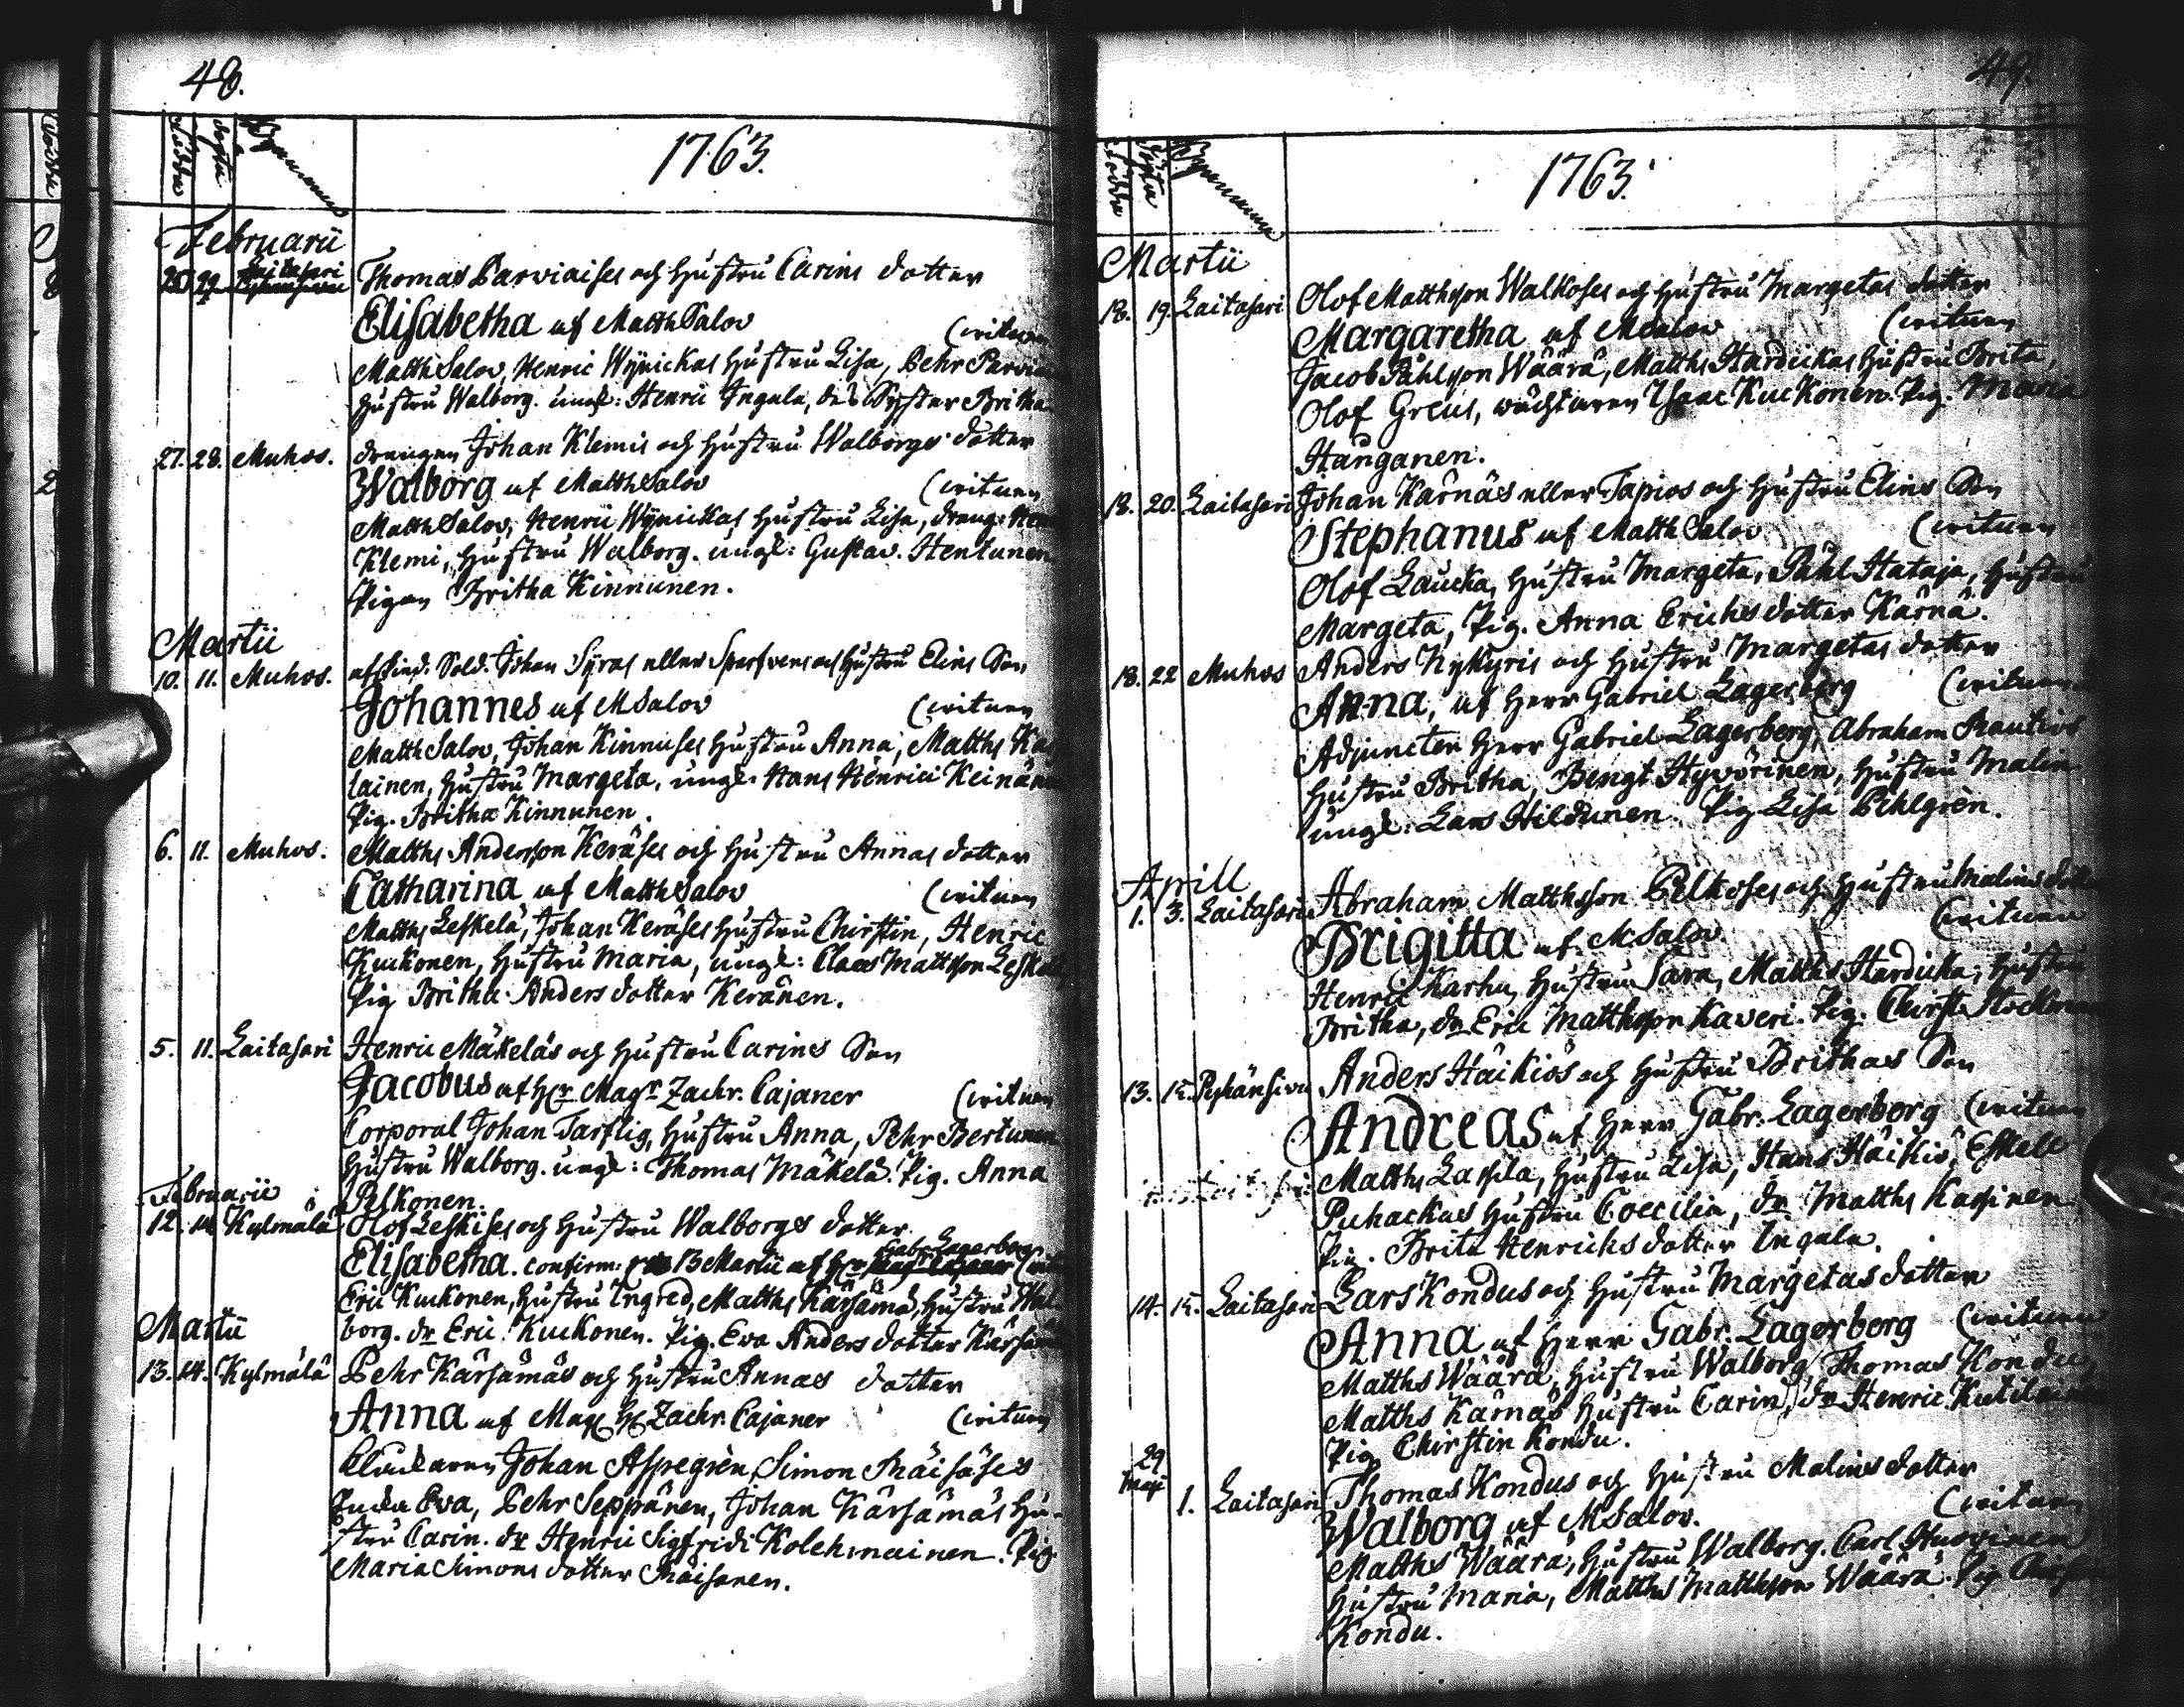 48.
1763.
födde
döpte
Byarnanı
Februarii
Laitasari
Thomas Parviaises och hustru Carins dotter
Elisabetha af Matth Salov (vittnen
Matth Salov, Henric Wÿrickas hustru Lisa, Pehr Parviai
hustru Walborg. ungk: Henric Ingala, des Syster Britha
27. 28. Muhos. drengen Johan Klemis och hustru Walborgs dotter
Walborg af Matth Salov (vittnen
Matth Salov, Henric Wÿrickas hustru Lisa, dreng: Hen
Klemi, hustru Walborg. ungk: Gustav. Hentunen
Pigan Britha Kinnunen.
Martii
10. 11. Muhos. afsked: Sold. Johan Syras eller Sparfvens och hustru Elins Son
Johannes af M Salov (vittnen
Matth Salov, Johan Kinnuses hustru Anna, Matths Kas
tainen, hustru Margeta, ungk. Hans Henrici Keinän
Pig. Britha Kinnunen.
6. 11. Muhos. Matths Andersson Keräses och hustru Annas dotter
Catharina af Matth Salov (vittnen
Matths Leskelä, Johan Keräses hustru Chirstin, Henric
Kuckonen, hustru Maria, ungk: Claes Mattsson Leskelä
Pig Britha Anders dotter Keränen.
5. 11. Laitasari Henric Mäkeläs och hustru Carins Son
Jacobus af Hr Magr Zachr. Cajaner (vittnen
Corporal Johan Tarflig, hustru Anna, Pehr Bertunen
hustru Walborg. ungk: Thomas Mäkelä. Pig. Anna
Pelkonen.
Februarii
12. 14 Kylmälä Olof Leskises och hustru Walborgs dotter
Elisabetha. confirm: 13 Martii af Hr Gabr Lagerborg
Eric Kuckonen, hustru Ingred, Matths Kärsämä, hustru Wal
borg. dr Eric Kuckonen. Pig. Eva Anders dotter Kärsämä
Martii
13. 14. Kylmälä Pehr Kärsämäs och hustru Annas dotter
Anna af Mag Hr Zachr. Cajaner (vittnen
Cluckaren Johan Aspegrèn, Simon Räisäses
Encka Eva, Pehr Seppänen, Johan Kärsämäs hu-
stru Carin. dr Henric Sigfridi Kolehmainen. Pig
Maria Simons dotter Räisänen.
49.
1763.
födde
döpte
Martii
18. 19. Laitasari Olof Matthsson Walkoses och hustru Margetas dotter
Margaretha af M Salov (vittnen
Jacob Påhlsson Wäärä, Matths Hardickas hustru Brita,
Olof Greus, wächtaren Isaac Kuckonen. Pig. Maria
Hanganen.
18. 20. Laitasari Johan Kärnäs eller Tapios och hustru Elins Son
Stephanus af Matth Salov (vittnen
Olof Laucka, hustru Margeta, Påhl Hataja, hustru
Margeta, Pig. Anna Erichs dotter Kärnä.
18. 22 Muhos Anders Nykyris och hustru Margetas dotter
Anna, af Herr Gabriel Lagerborg (vittnen
Adjuncten Herr Gabriel Lagerborg, Abraham Rautios
hustru Britha, Bengt Hyvörinen, hustru Malin
ungk: Lars Hildunen. Pig Lisa Pihlgrèn.
Aprill
1. 3. Laitasari Abraham Matthsson Pelkoses och hustru Malins dotter
Brigitta af M Salov (vittnen
Henric Karhu, hustru Sara, Matths Hardicka, hustru
Britha, dr Eric Matthsson Kaveri. Pig. Chirst.
13. 15. Pyhänsivu Anders Häikiös och hustru Brithas Son
Andreas af Herr Gabr. Lagerborg (vittnen
Matths Lassila, hustru Lisa, Hans Häikiö, Eskell
Puhackas hustru Coecilia, dr Matths Kasinen
Pig. Brita Henrichs dotter Ingala.
14. 15. Laitasari Lars Kondus och hustru Margetas dotter
Anna af Herr Gabr. Lagerborg (vittnen
Matths Wäärä, hustru Walborg, Thomas Kondu,
Matths Kärnäs hustru Carin, dr Henric
Pig Chirstin Kondu.
29 Maji
1. Laitasari Thomas Kondus och hustru Malins dotter
Walborg af M Salov. (vittnen
Matths Wäärä, hustru Walborg. Carl Huovinen
hustru Maria, Matths Matthsson Wäärä. Pig Chirstin
Kondu.